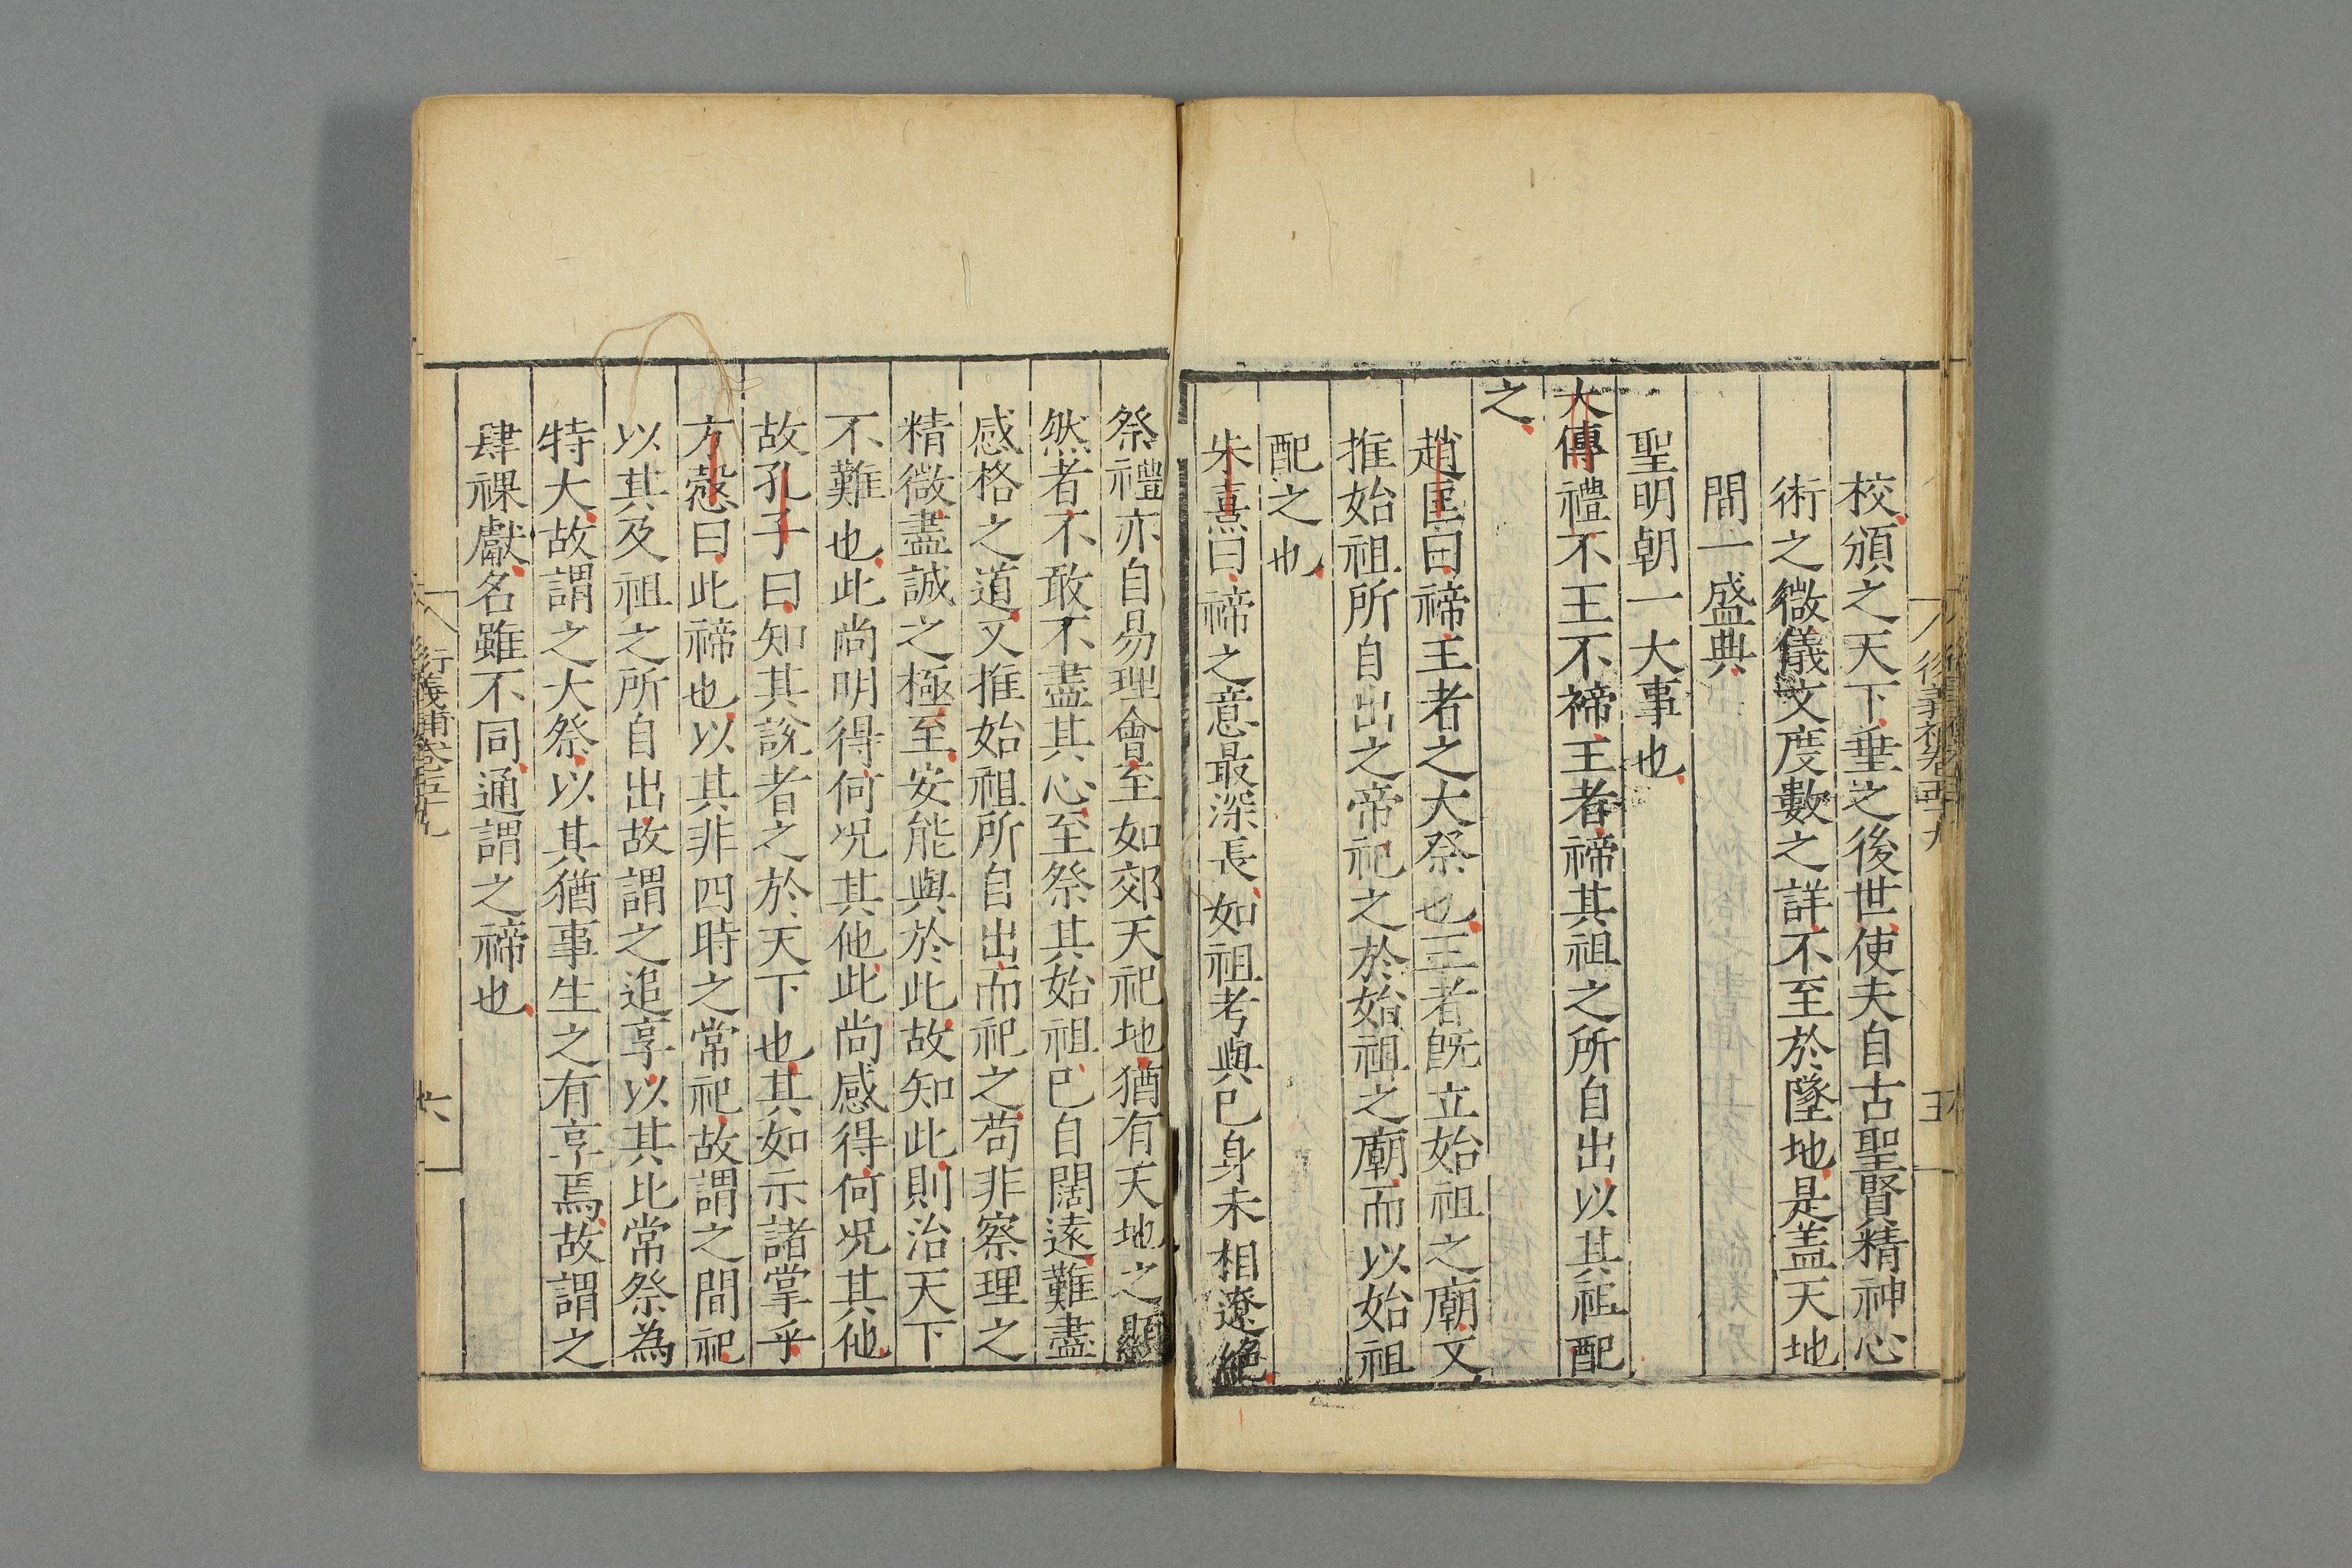 校頒之天下垂之後世使夫自古聖賢精神心
術之微儀文度數之詳不至於墜地是盖天地
間一盛典
聖明朝一大事也
大傳禮不王不禘王者禘其祖之所自出以其祖配
之
趙匡曰禘王者之大祭也王者旣立始祖之廟又
推始祖所自出之帝祀之於始祖之廟而以始祖
配之也
朱熹曰禘之意最深長如祖考與已身未相遼絶
祭禮亦自易理會至如郊天祀地猶有天地之顯
然者不敢不盡其心至祭其始祖已自闊遠難盡
感格之道又推始祖所自出而祀之苟非察理之
精微盡誠之極至安能與於此故知此則治天下
不難也此尚明得何况其他此尚感得何况其他
故孔子曰知其說者之於天下也其如示諸掌乎
方慤曰此禘也以其非四時之常祀故謂之間祀
以其及祖之所自出故謂之追享以其比常祭為
特大故謂之大祭以其猶事生之有享焉故謂之
肆祼獻名雖不同通謂之禘也
六